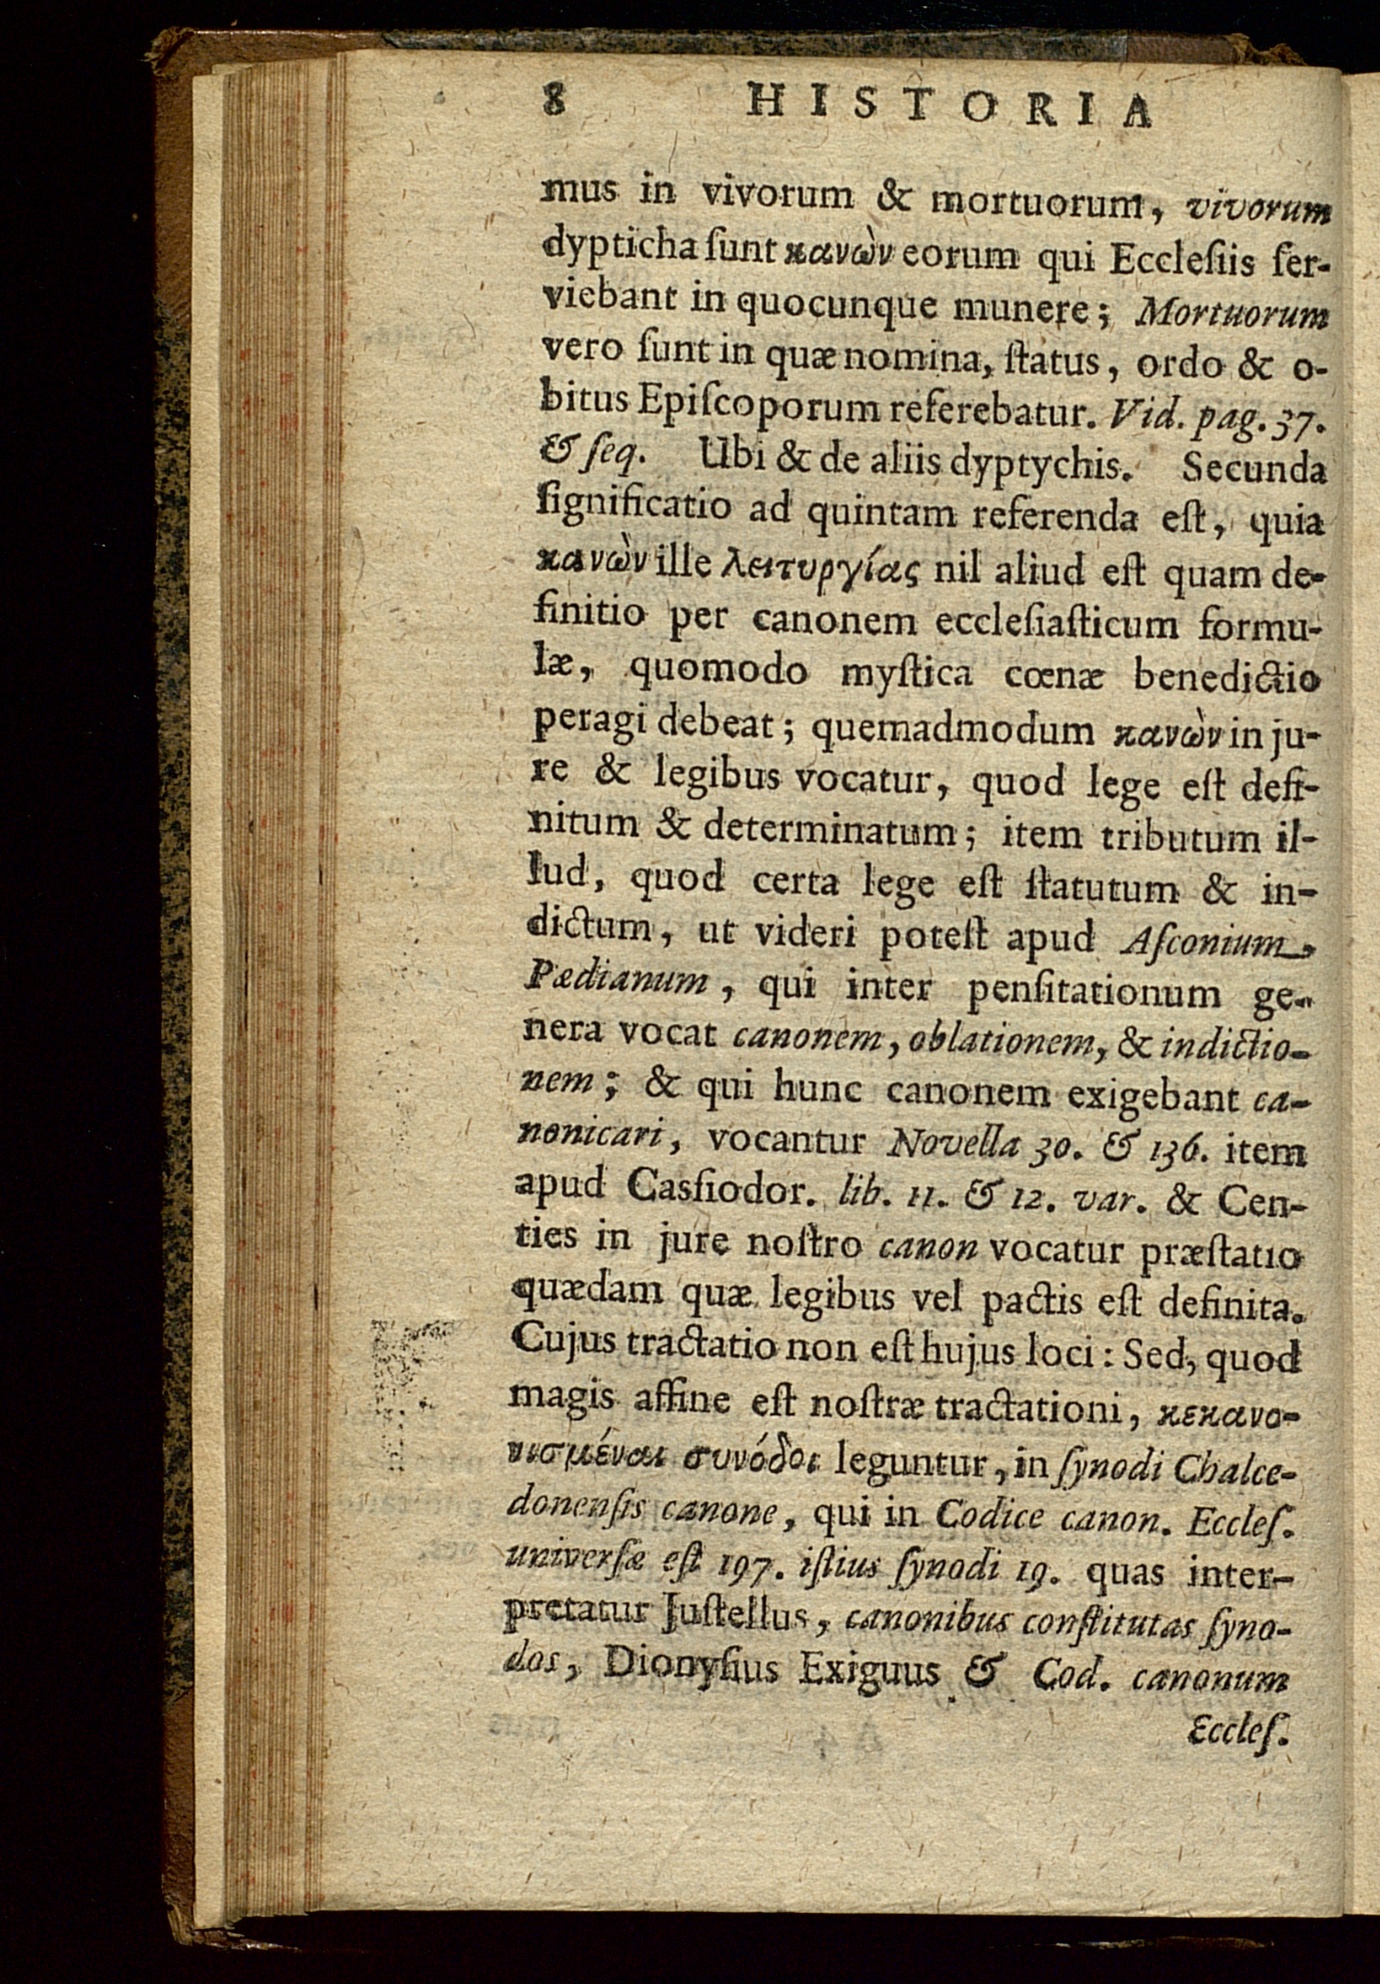 8 HISTORIA
mus in vivorum & mortuorum, vivorum
dypticha ſunt κανὼν eorum qui Eccleſiis ſer-
viebant in quocunque munere; Mortuorum
vero ſunt in quæ nomina, ſtatus, ordo & o-
bitus Epiſcoporum referebatur. Vid. pag. 37.
& ſeq. Ubi & de aliis dyptychis. Secunda
ſignificatio ad quintam referenda eſt, quia
κανὼν ille λειτυργίας nil aliud eſt quam de-
finitio per canonem eccleſiaſticum formu-
læ, quomodo myſtica cœnæ benedictio
peragi debeat; quemadmodum κανὼν in ju-
re & legibus vocatur, quod lege eſt defi-
nitum & determinatum; item tributum il-
lud, quod certa lege eſt ſtatutum & in-
dictum, ut videri poteſt apud Aſconium
Pædianum, qui inter penſitationum ge-
nera vocat canonem, oblationem, & indictio-
nem; & qui hunc canonem exigebant ca-
nonicari, vocantur Novella 30. & 136. item
apud Caſſiodor. lib. 11. & 12. var. & Cen-
ties in jure noſtro canon vocatur præſtatio
quædam quæ legibus vel pactis eſt definita.
Cujus tractatio non eſt hujus loci: Sed, quod
magis affine eſt noſtræ tractationi, κεκανο-
νισμέναι συνόδοι leguntur, in ſynodi Chalce-
donenſis canone, qui in Codice canon. Eccleſ.
univerſæ eſt 197. iſtius ſynodi 19. quas inter-
pretatur Juſtellus, canonibus conſtitutas ſyno-
dos, Dionyſius Exiguus & Cod. canonum
Eccleſ.